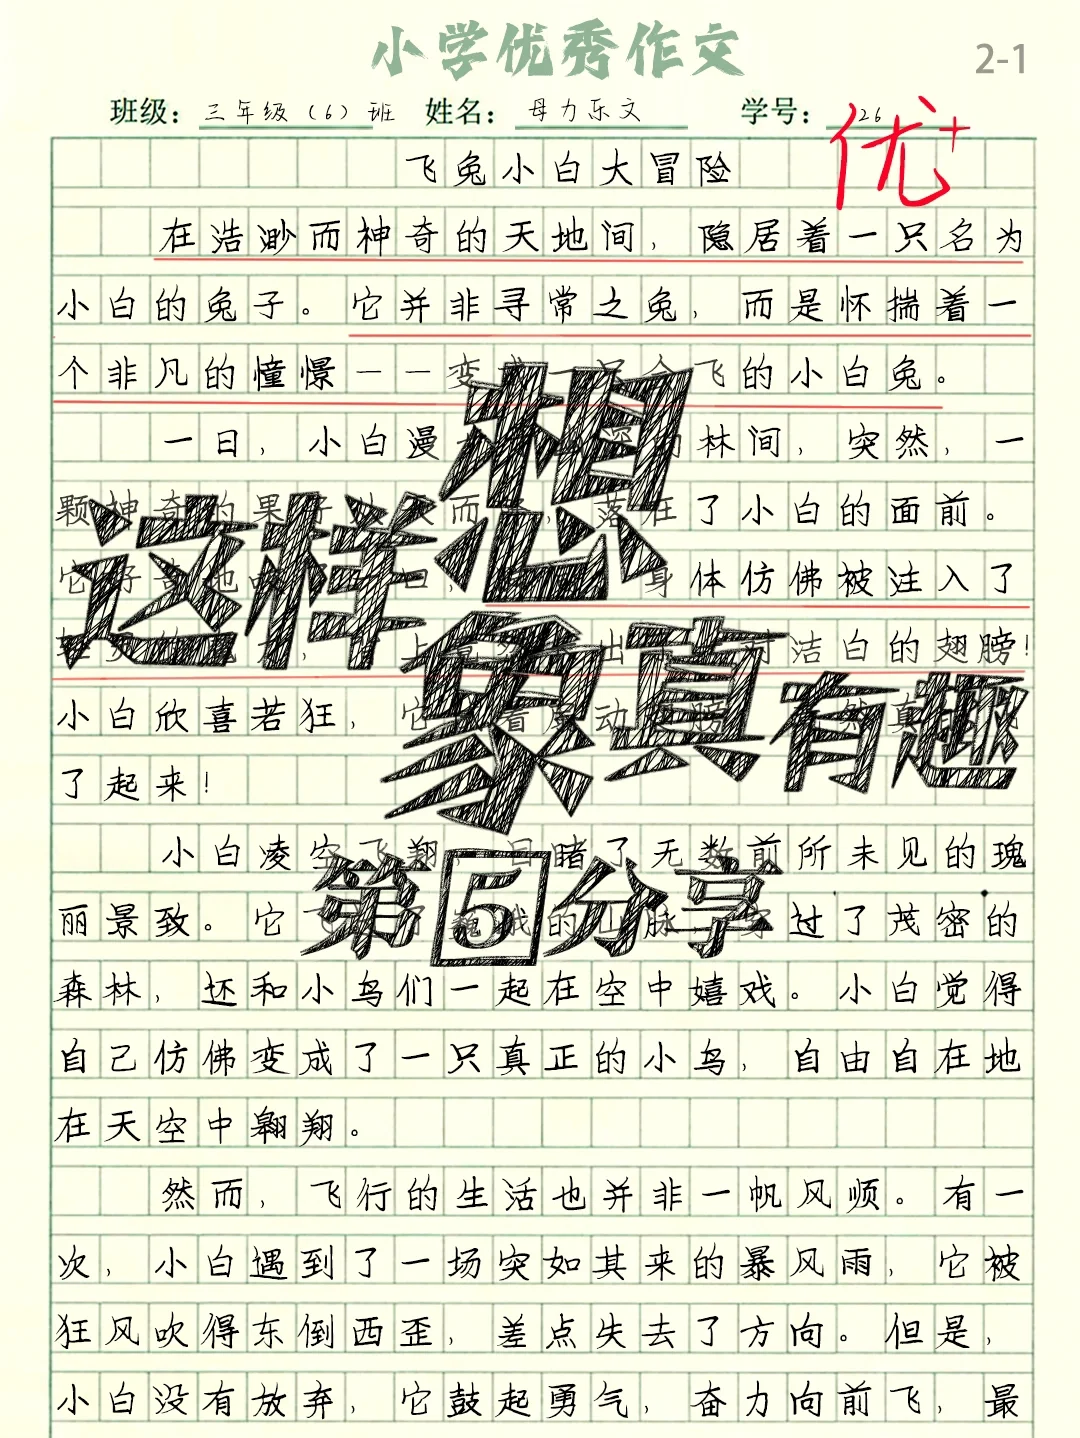 小学优秀作文
2-1
班级：三年级（6）班 姓名：母力乐文 学号：26
优+
飞兔小白大冒险
在浩渺而神奇的天地间，隐居着一只名为
小白的兔子。它并非寻常之兔，而是怀揣着一
个非凡的憧憬——变成一只会飞的小白兔。
一日，小白漫 林间，突然，一
颗神奇的果子 而 落在了小白的面前。
它好奇地 身体仿佛被注入了
出 对洁白的翅膀！
小白欣喜若狂，它 着 动 膀 真
了起来！
小白凌空飞翔，目睹了无数前所未见的瑰
丽景致。它飞 巍峨的山脉，穿过了茂密的
森林，还和小鸟们一起在空中嬉戏。小白觉得
自己仿佛变成了一只真正的小鸟，自由自在地
在天空中翱翔。
然而，飞行的生活也并非一帆风顺。有一
次，小白遇到了一场突如其来的暴风雨，它被
狂风吹得东倒西歪，差点失去了方向。但是，
小白没有放弃，它鼓起勇气，奋力向前飞，最
这样想象真有趣
第5分享